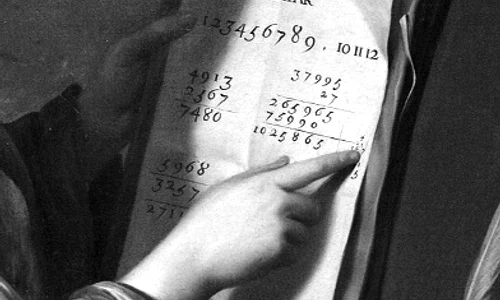 123456789 . 10 11 12
4913
2567
7480
37995
27
265965
75990
1025865
5968
3257